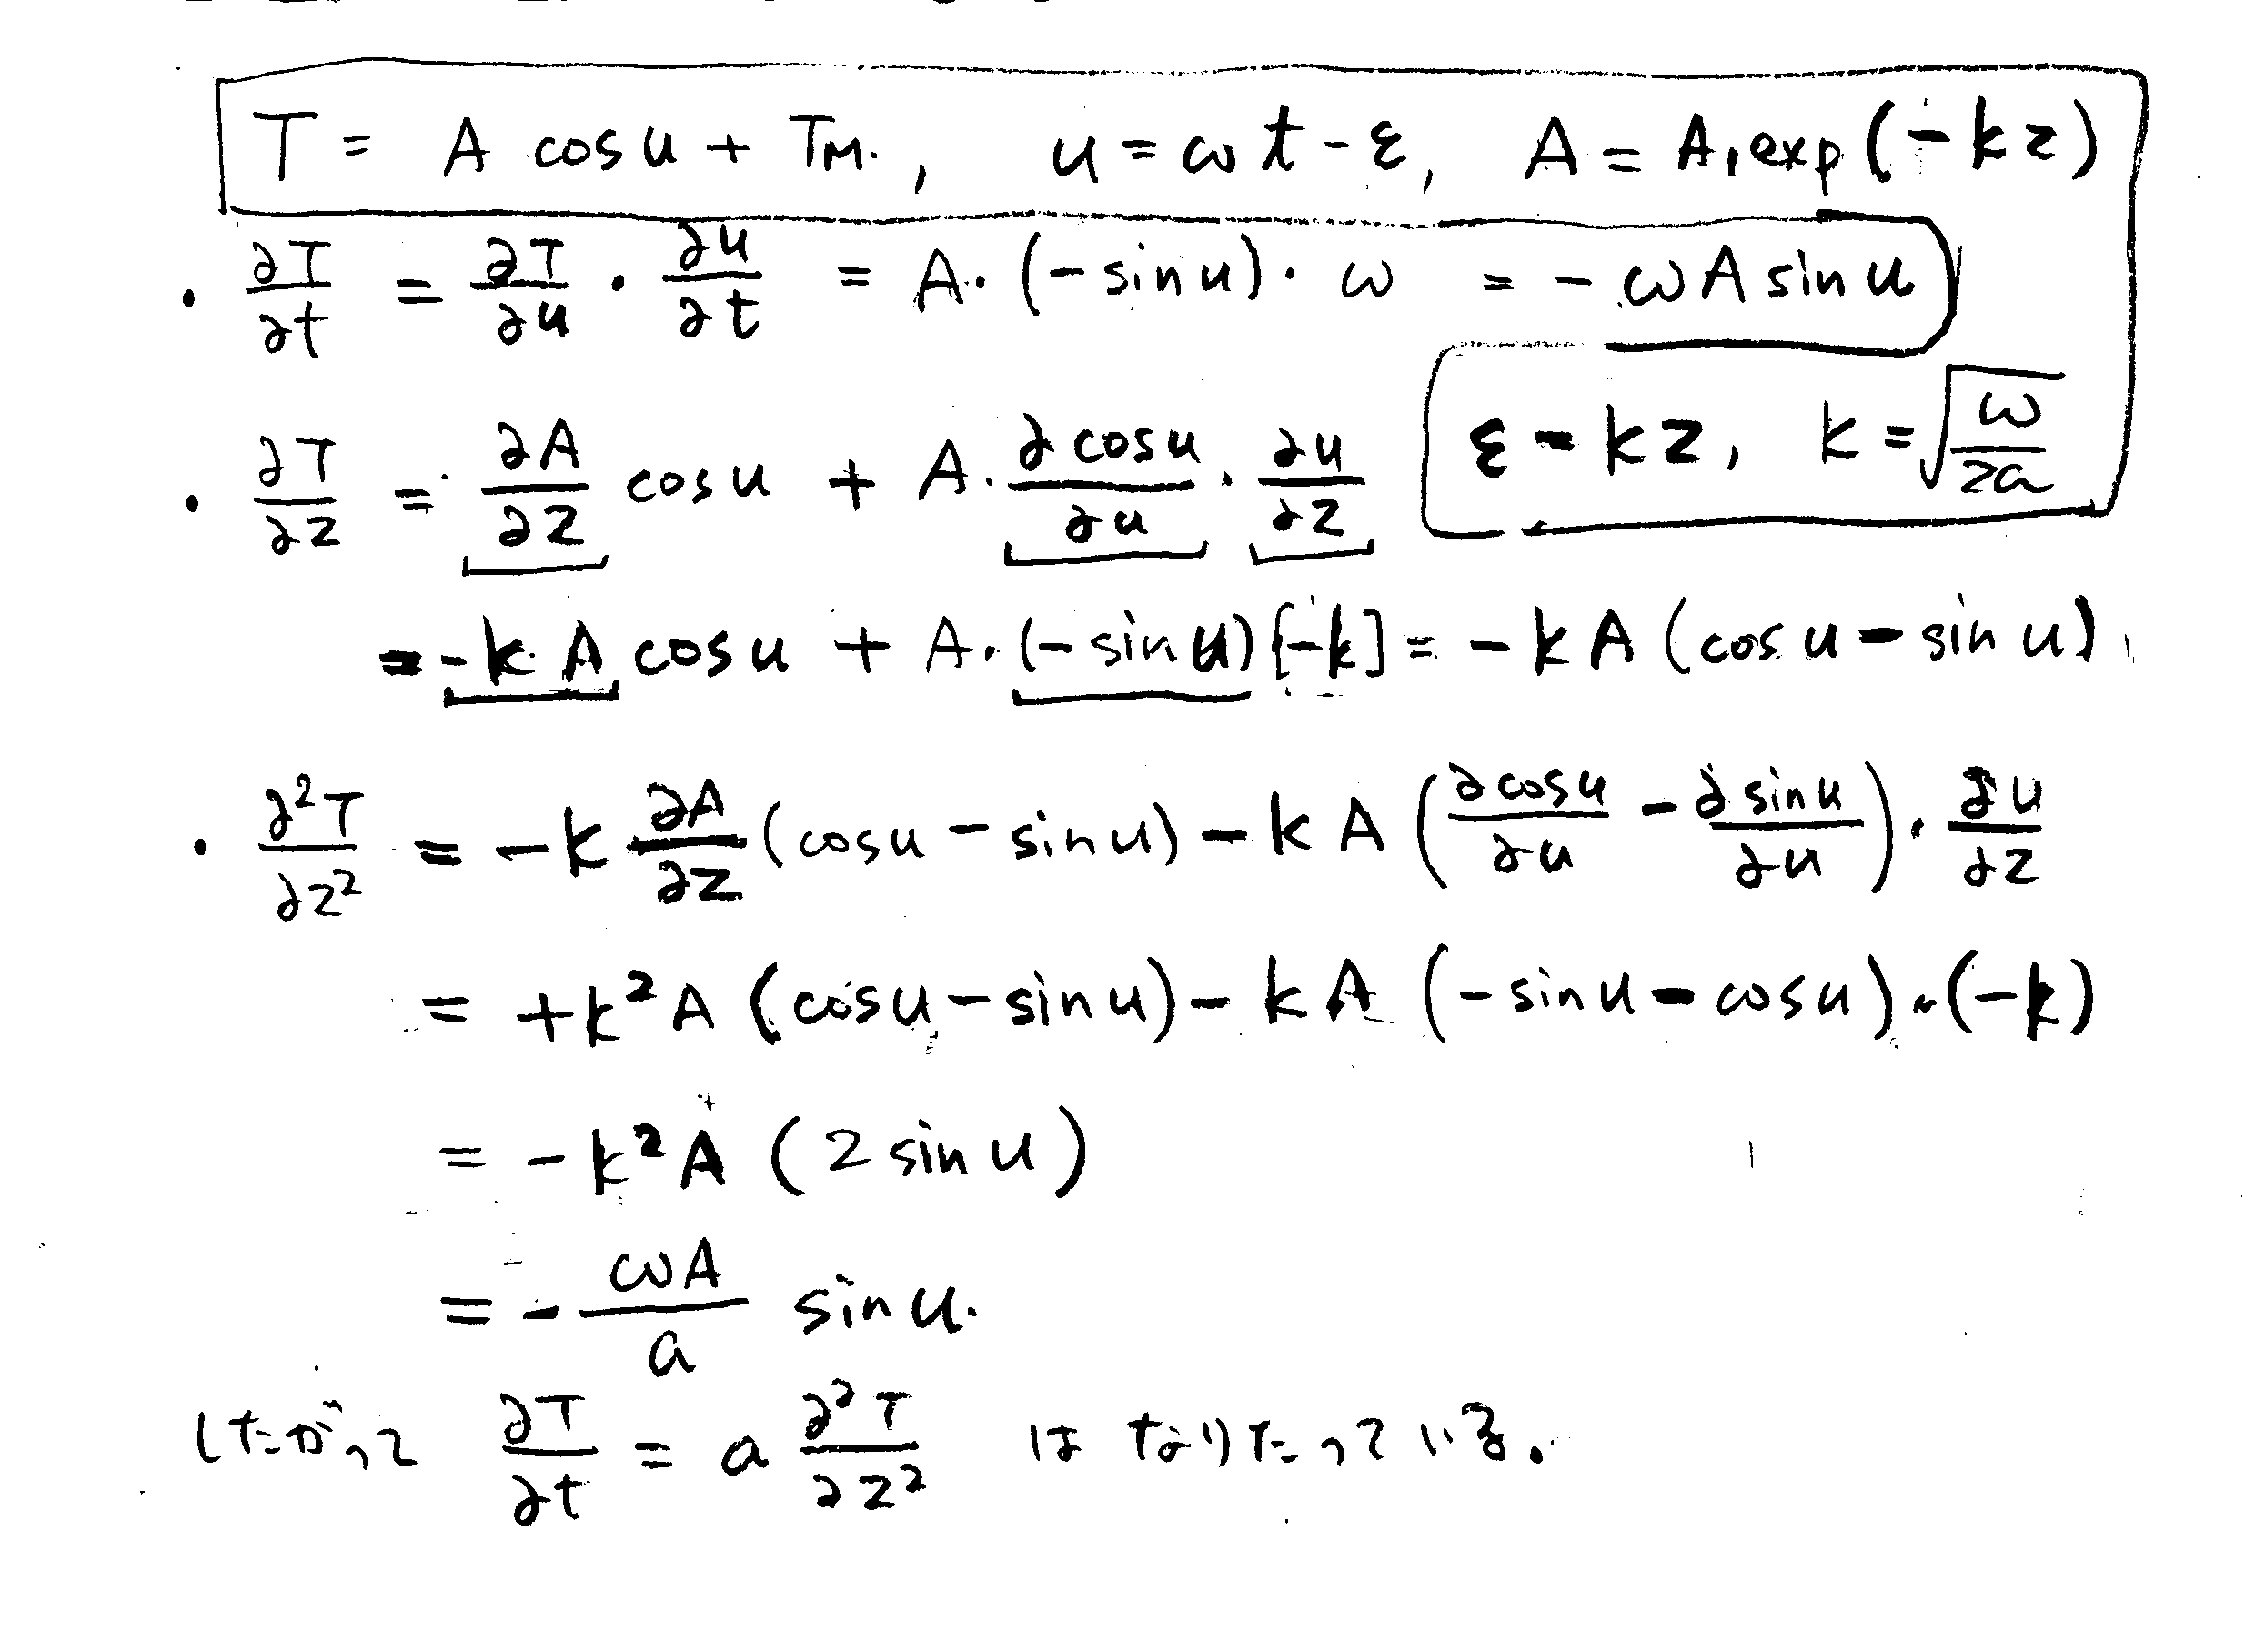 T = A cos u + T_M. , u = ωt - ε, A = A₁exp(-kz)
・ ∂T/∂t = ∂T/∂u · ∂u/∂t = A·(-sin u)· ω = - ωA sin u
ε = kz, k = √(ω/2a)
・ ∂T/∂z = ∂A/∂z cos u + A· ∂cos u/∂u · ∂u/∂z
= -k A cos u + A·(-sin u)[-k] = -kA(cos u - sin u)
・ ∂²T/∂z² = -k ∂A/∂z (cos u - sin u) - kA (∂cos u/∂u - ∂sin u/∂u) · ∂u/∂z
= +k²A (cos u - sin u) - kA (-sin u - cos u)·(-k)
= -k²A (2 sin u)
= - ωA/a sin u.
したがって ∂T/∂t = a ∂²T/∂z² はなりたっている.